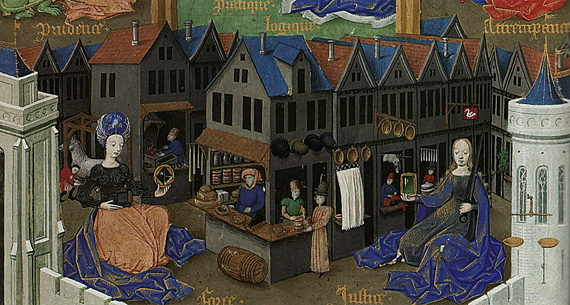 pratique
Prudence · logique · Attrempance
Force · Justice